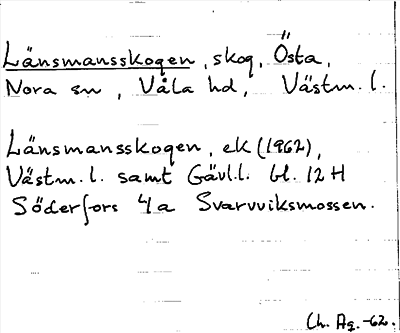 Länsmansskogen, skog, Östa,
Nora sn, Våla hd, Västm. l.
Länsmansskogen, ek (1962),
Västm. l. samt Gävl.l. bl. 12 H
Söderfors 4a Svarvviksmossen.
Ch. Ag. -62.